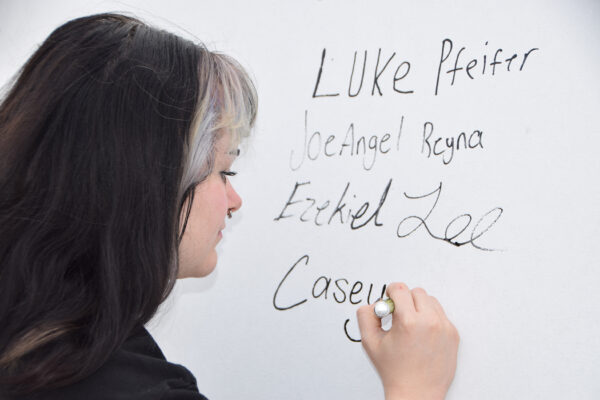 LUKE Pfeifer
JoeAngel Reyna
Ezekiel Lee
Casey